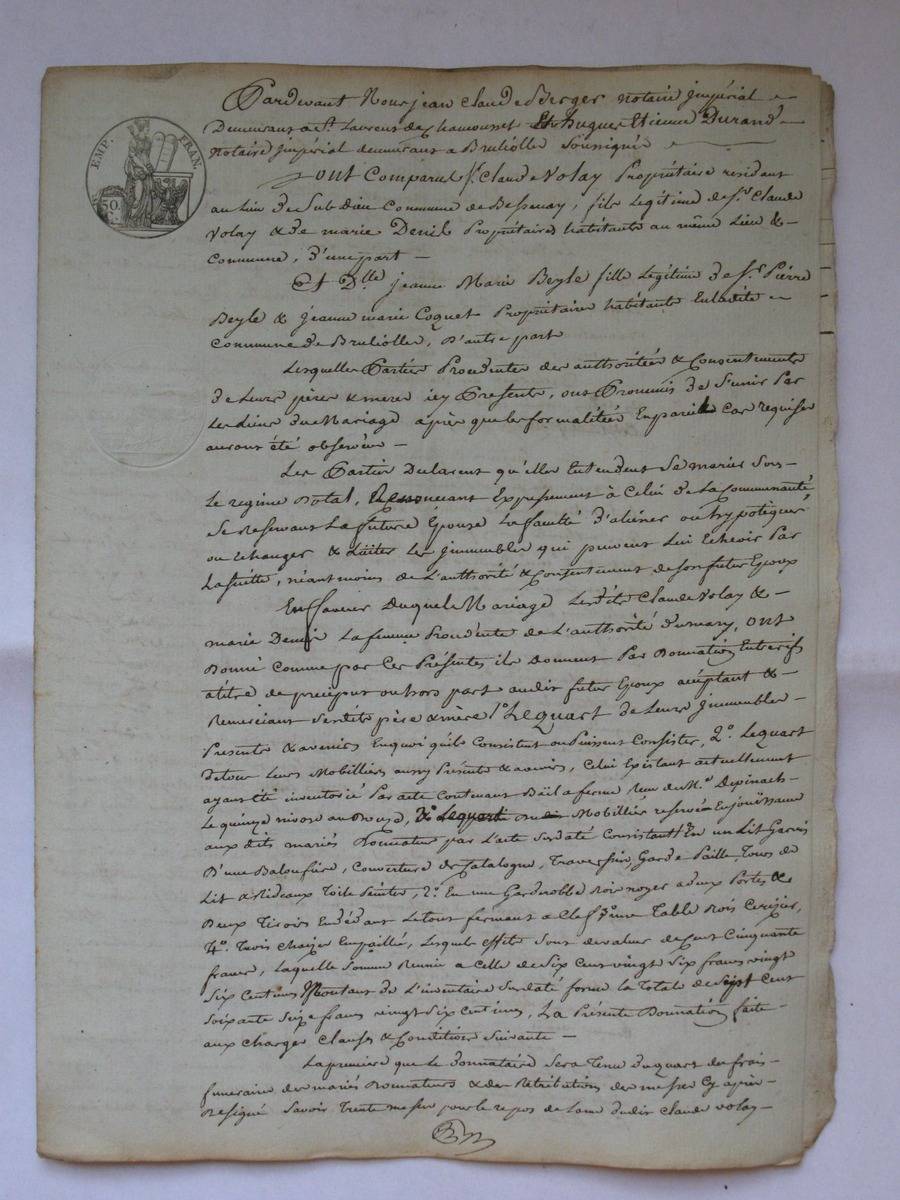 EMP. FRAN.
50
Pardevant Nous jean Claude Berger notaire jmpérial
Demeurant a St. Laurent de Chamousset Et hugues Etienne Durand
notaire jmpérial demeurant a Brulliolle Soussignés
ont Comparu Sr. Claude Volay Propriétaire residant
au lieu de Sub Dieu Commune de Bessenay, fils Legitime de Sr. Claude
Volay & de marie Denis Propriétaires habitants au même Lieu &
Commune, d'une part
Et Dlle jeanne Marie Beyle fille Légitime de Sr. Pierre
Beyle & jeanne marie Coquet Propriétaires habitants Enladite
Commune de Brulliolle, D'autre part
Lesquelles Parties Procedentes des authoritées & Consentements
de Leurs pères & meres icy Presents, ont Promis de S'unir Par
les Liens du Mariage après que les formalitées En pareil cas requises
auront été observées
Les Parties Declarent qu'elles Entendent Se marier Sous
le regime Dotal, Renonceant Expressement à Celui de La Communauté
Se reservant La future Epouse La faculté d'aliéner ou hypotequer
ou Echanger & Liciter les jmmeubles qui peuvent Lui Echevoir Par
La suitte, néant moins de L'authorité & Consentement de Son futur Epoux
En faveur Duquel Mariage Lesdits Claude Volay &
marie Denis La femme Procedente de L'authorité du mary, ont
Donné Comme par Ces Présentes ils Donnent Par Donnation Entrevifs
a titre de preciput ou hors part audit futur Epoux acceptant &
Remerciant Sesdits père & mère 1° Le Quart de Leurs jmmeubles
Presents & avenirs En quoi qu'ils Consistent ou Puissent Consister, 2°. Le quart
de tout Leurs Mobilliers aussy Présents & avenirs, Celui Existant actuellement
ayant été inventorié Par acte Contenant Bail a ferme Reçu de Me. Depinach
Le quinze nivose an Douze, Mobillier reservé En jouissance
aux dits mariés Donnateurs par L'acte Susdaté Consistant 1° En un Lit Garni
D'une Baloufière, Couverture de Catalogne, Traversin, Garde Paille, Tours de
Lit & Rideaux Toile Peinte, 2°. En une Garderobbe Bois noyer a deux Portes &
Deux Tiroirs En dedans Le tout fermant a Clef 3° une Table Bois Cerisier,
4°. Trois Chaises Empaillé, Lesquels effets Sont de valeur de Cent Cinquante
francs, Laquelle Somme Reunie a Celle de Six Cent vingt Six francs vingt
Six Centimes Montant de L'inventaire Susdaté forme la Total de Sept Cent
Soixante Seize francs vingt Six Centimes, La Présente Donnation faite
aux Charges Clauses & Conditions Suivantes
La premiere que le Donnataire Sera Tenu du quart des frais
funeraires des mariés Donnateurs & des Retributions des messes Cy après
Designé Savoir Trente messes pour le repos de Lame dudit Claude Volay